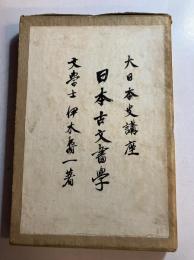 大日本史講座
日本古文書學
文學士 伊木壽一著